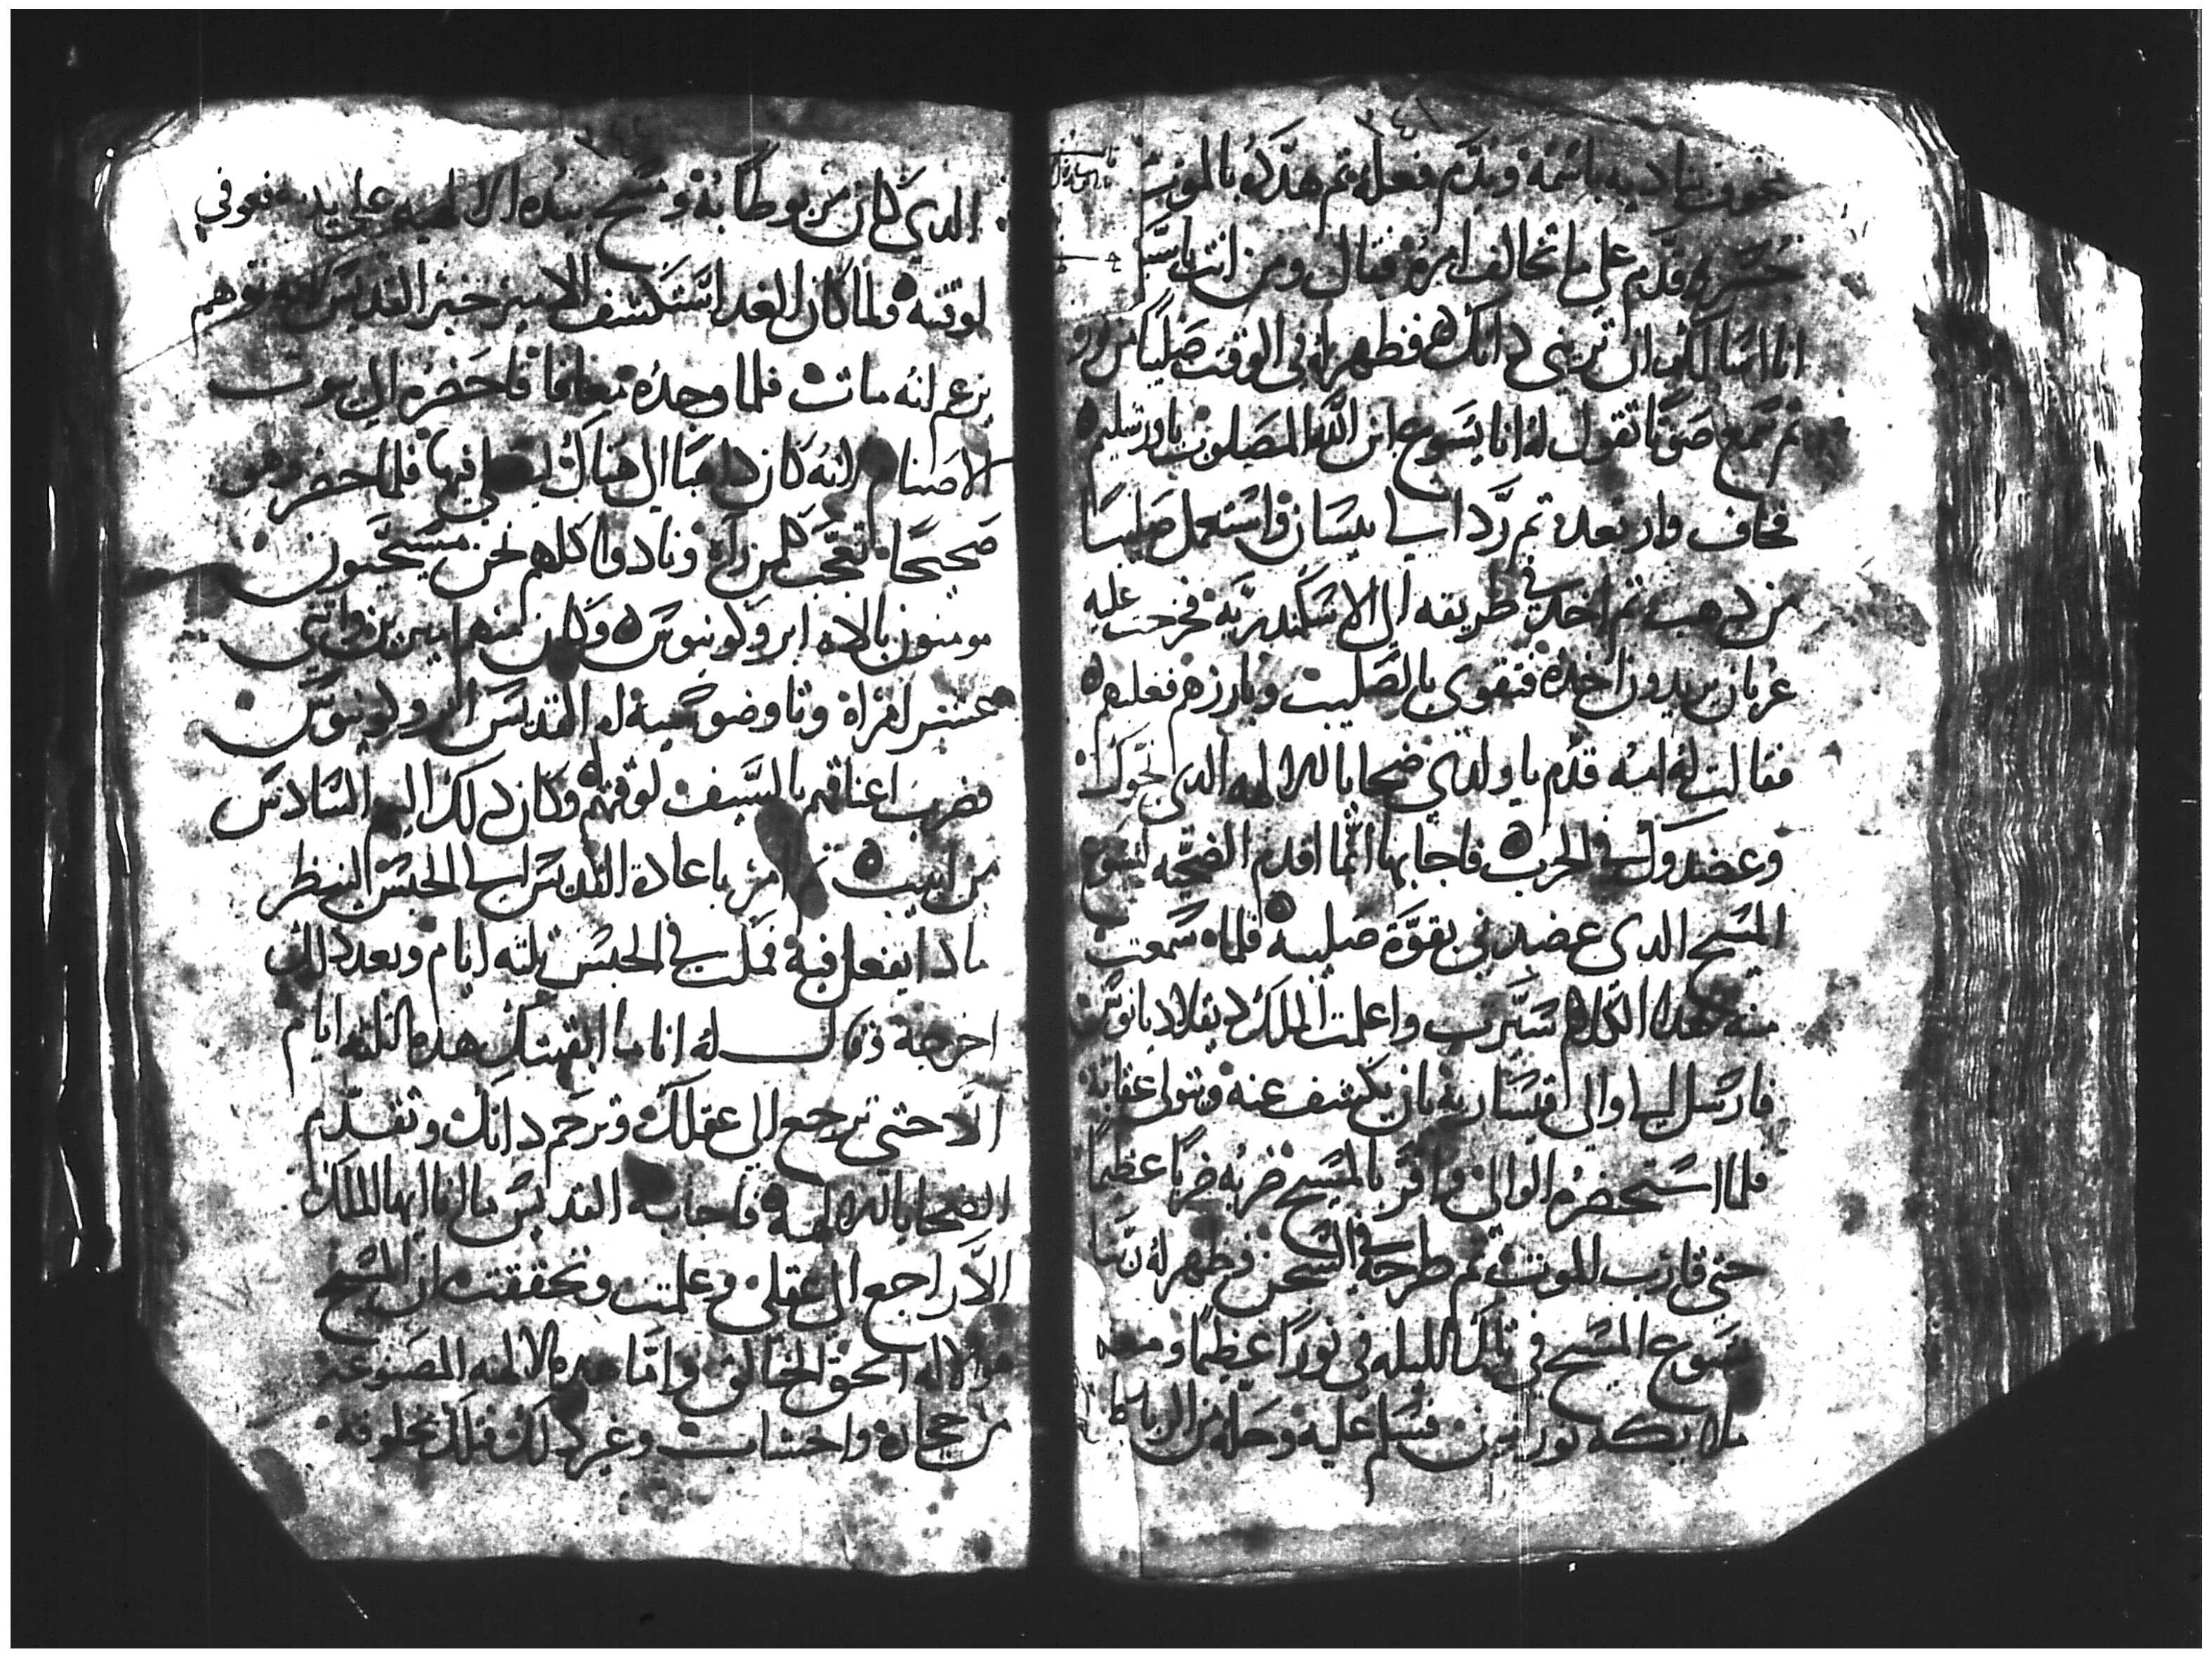 ٣٤١
بصوت يناديه باسمه ويذم فعله ثم هدده بالموت
قدم على ما تخالف امره فقال ومن انت يا سيد
انا اسالك ان تريني ذاتك فظهر له في الوقت صليبا من نور
ثم سمع صوتا تقول له انا يسوع ابن الله المصلوب باورشليم
فخاف وارتعد ثم رد الى بيسان واستعمل صليبا
من دهب ثم اخد في طريقه الى الاسكندرية فخرجت عليه
عربان يريدون اخده فتقوى بالصليب وبارزهم فغلبهم
فقالت له امه قدم يا ولدي ضحايا للالهه الدي
وعضدوك في الحرب فاجابها انما اقدم الضحيه ليسوع
المسيح الدي عضدني بقوة صليبه فلما سمعت
منه هدا الكلام واعلمت الملك دقلاديانوس
فارسل الى والي قيسارية بان يكشف عنه ويتولى عقابة
فلما استحضره الوالي واقر بالمسيح ضربه ضربا عظيما
حتى قارب الموت ثم طرحه في السجن فظهر له ربنا
يسوع المسيح في تلك الليله في نورا عظيما ومعه
ملايكه نورانيين فسلم عليه وحله من الرباط
الدي كان مربوطا به ومسح بيده الالهيه على بدنه فعوفي
لوقته فلما كان الغد استكشف الامير خبر القديس لانه توهم
يزعم انه مات فلما وجده معافا فاحضره الى بيوت
الاصنام لانه كان داهبا الى هناك ليصلي فيها فلما حضر وهو
صحيحا تعجب كلمن راه ونادوا كلهم نحن مسيحيون
مومنون بالاه ابروكونيوس وكان منهم اميرين واتني
عشر امراة وتاوضوسيه ام القديس ابروكونيوس
فضرب اعناقهم بالسيف لوقتهم وكان دلك اليوم السادس
من ابيب امر باعادة القديس الى الحبس لينظر
مادا يفعل فيه فمكث في الحبس تلته ايام وبعد دلك
اخرجه وقال له انا ما ابقيتك هده التلته ايام
الا حتى ترجع الى عقلك وترحم داتك وتقدم
الضحايا للالهه فاجابه القديس ايها الملك
الان راجع الى عقلي وعلمت وتحققت ان المسيح
هو الاله الحق الخالق واما هده الالهه المصنوعه
من حجاره واخشاب وغير دلك فلك مخلوقه